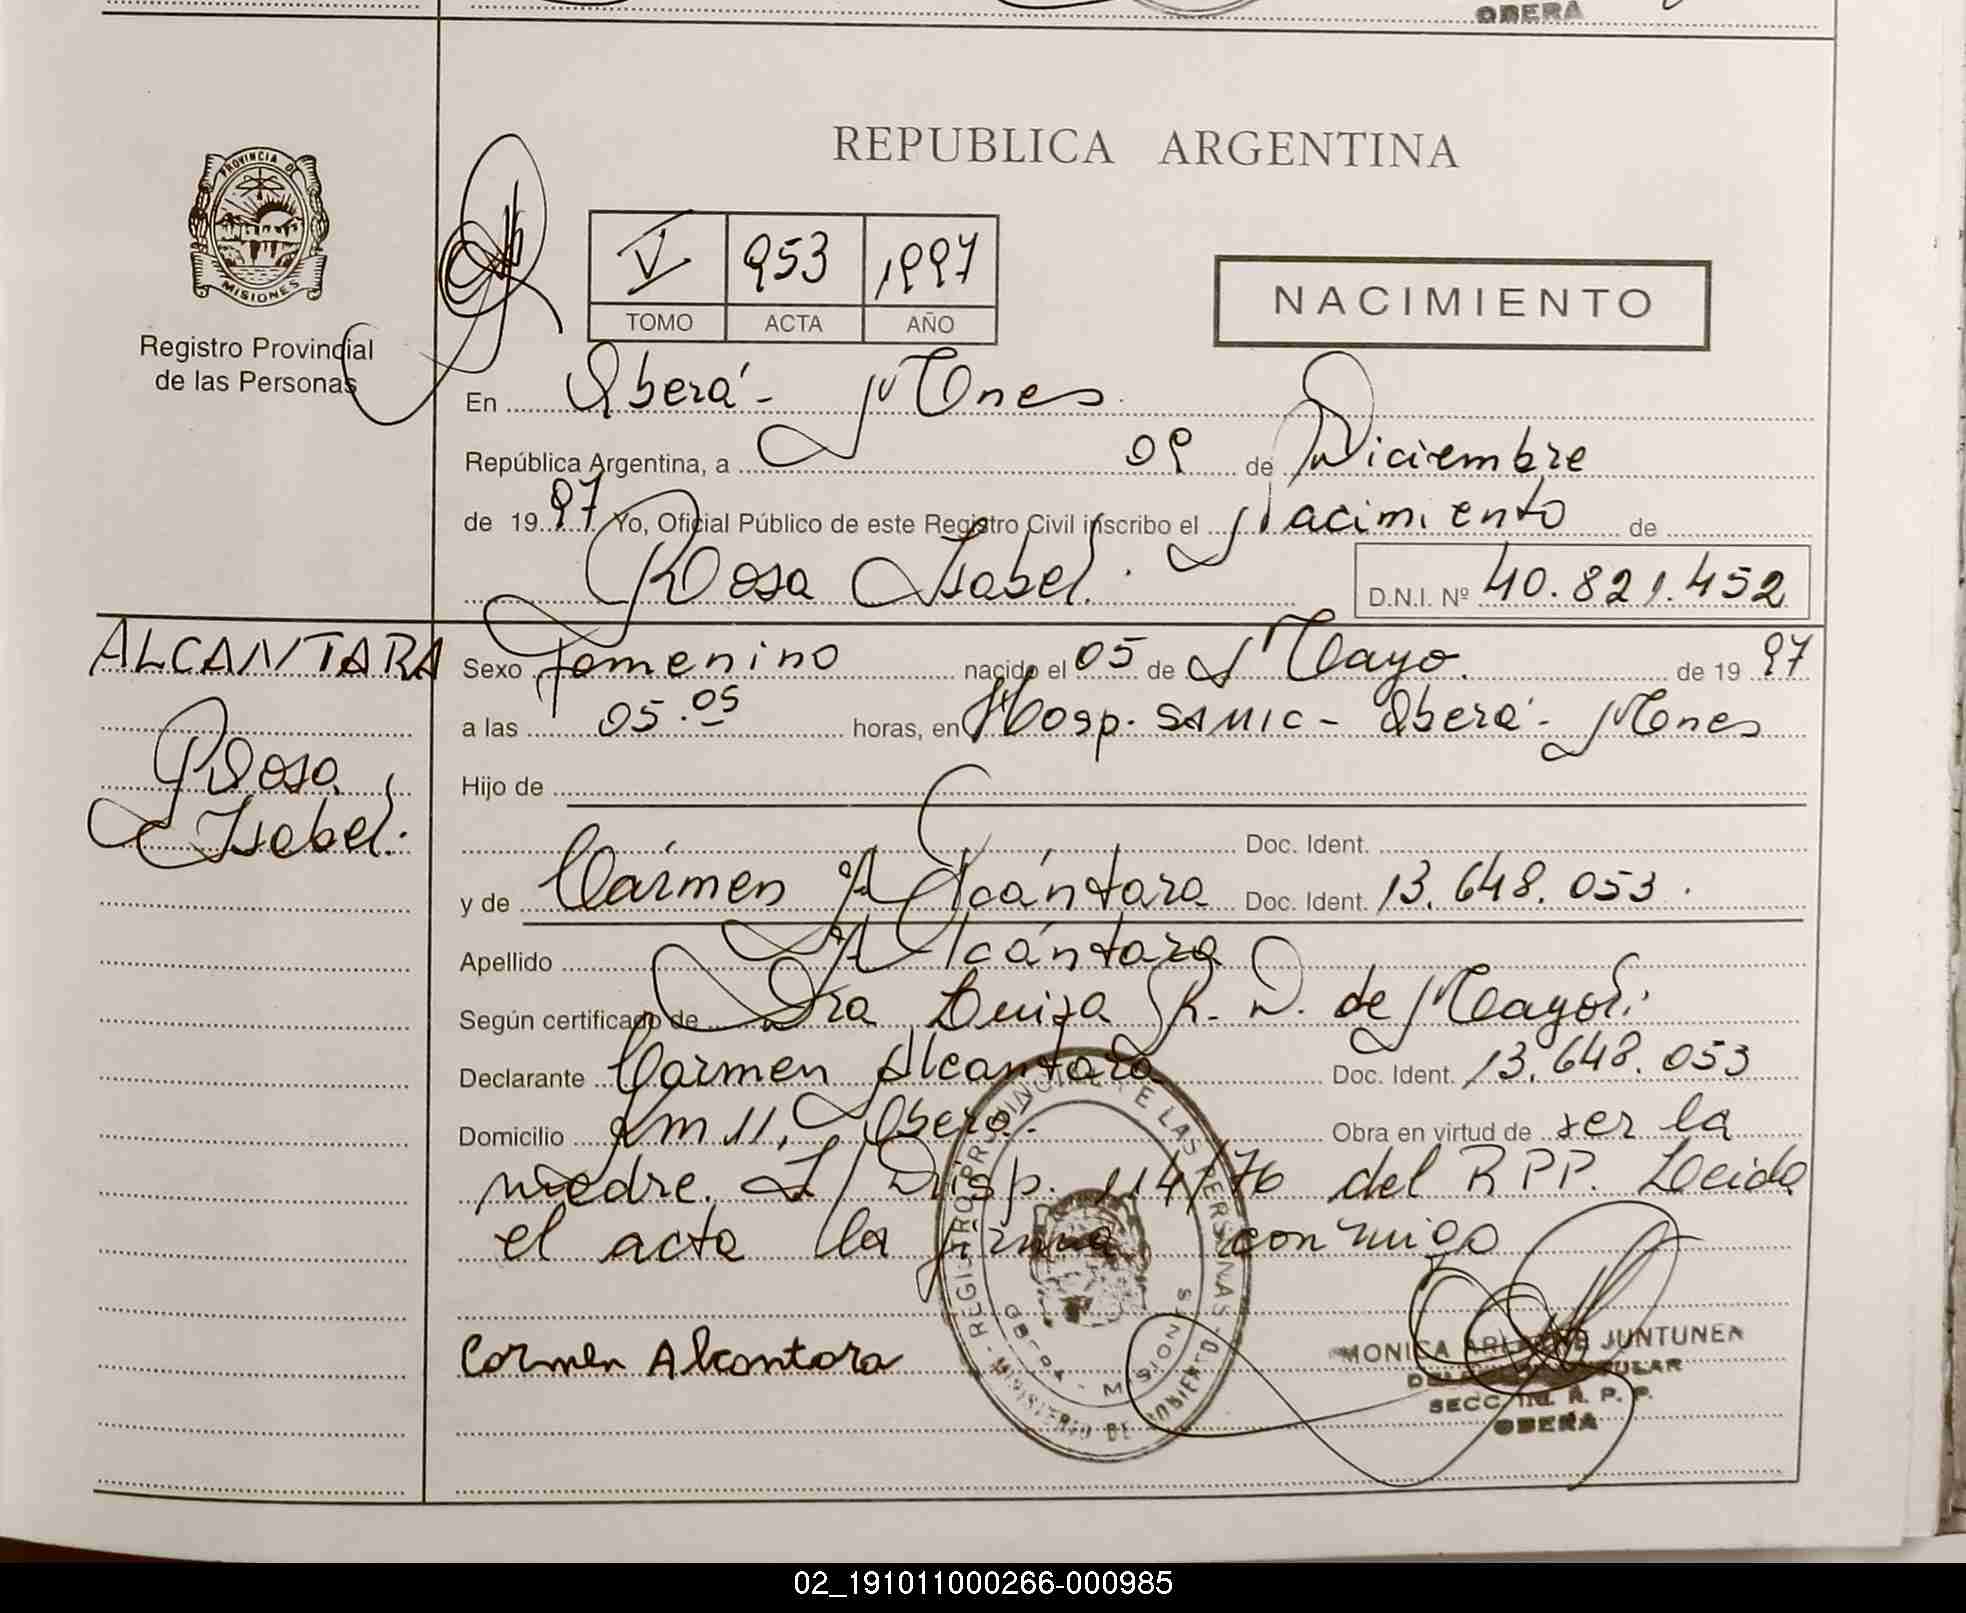 OBERA
PROVINCIA D
MISIONES
Registro Provincial
de las Personas
REPUBLICA ARGENTINA
V 953 1997
TOMO ACTA AÑO
NACIMIENTO
En Oberá - Mnes
República Argentina, a 09 de Diciembre
de 1997 Yo, Oficial Público de este Registro Civil inscribo el Nacimiento de
Rosa Isabel. D.N.I. Nº 40.821.452
ALCANTARA
Rosa
Isabel.
Sexo femenino nacido el 05 de Mayo. de 1997
a las 05.05 horas, en Hosp. SAMIC - Oberá - Mnes
Hijo de
Doc. Ident.
y de Cármen Alcántara Doc. Ident. 13.648.053.
Apellido Alcántara
Según certificado de Dra Luisa R. D. de
Declarante Carmen Alcantara Doc. Ident. 13.648.053
Domicilio Km 11, Oberá. Obra en virtud de ser la
madre. S/ Disp. 114/76 del RPP. Leida
el acta la firma conmigo
Carmen Alcantara
REGISTRO PROVINCIAL DE LAS PERSONAS - MINISTERIO DE GOBIERNO
OBERA - MISIONES
MONICA JUNTUNEN
SECC. R. P. P.
OBERA
02_191011000266-000985